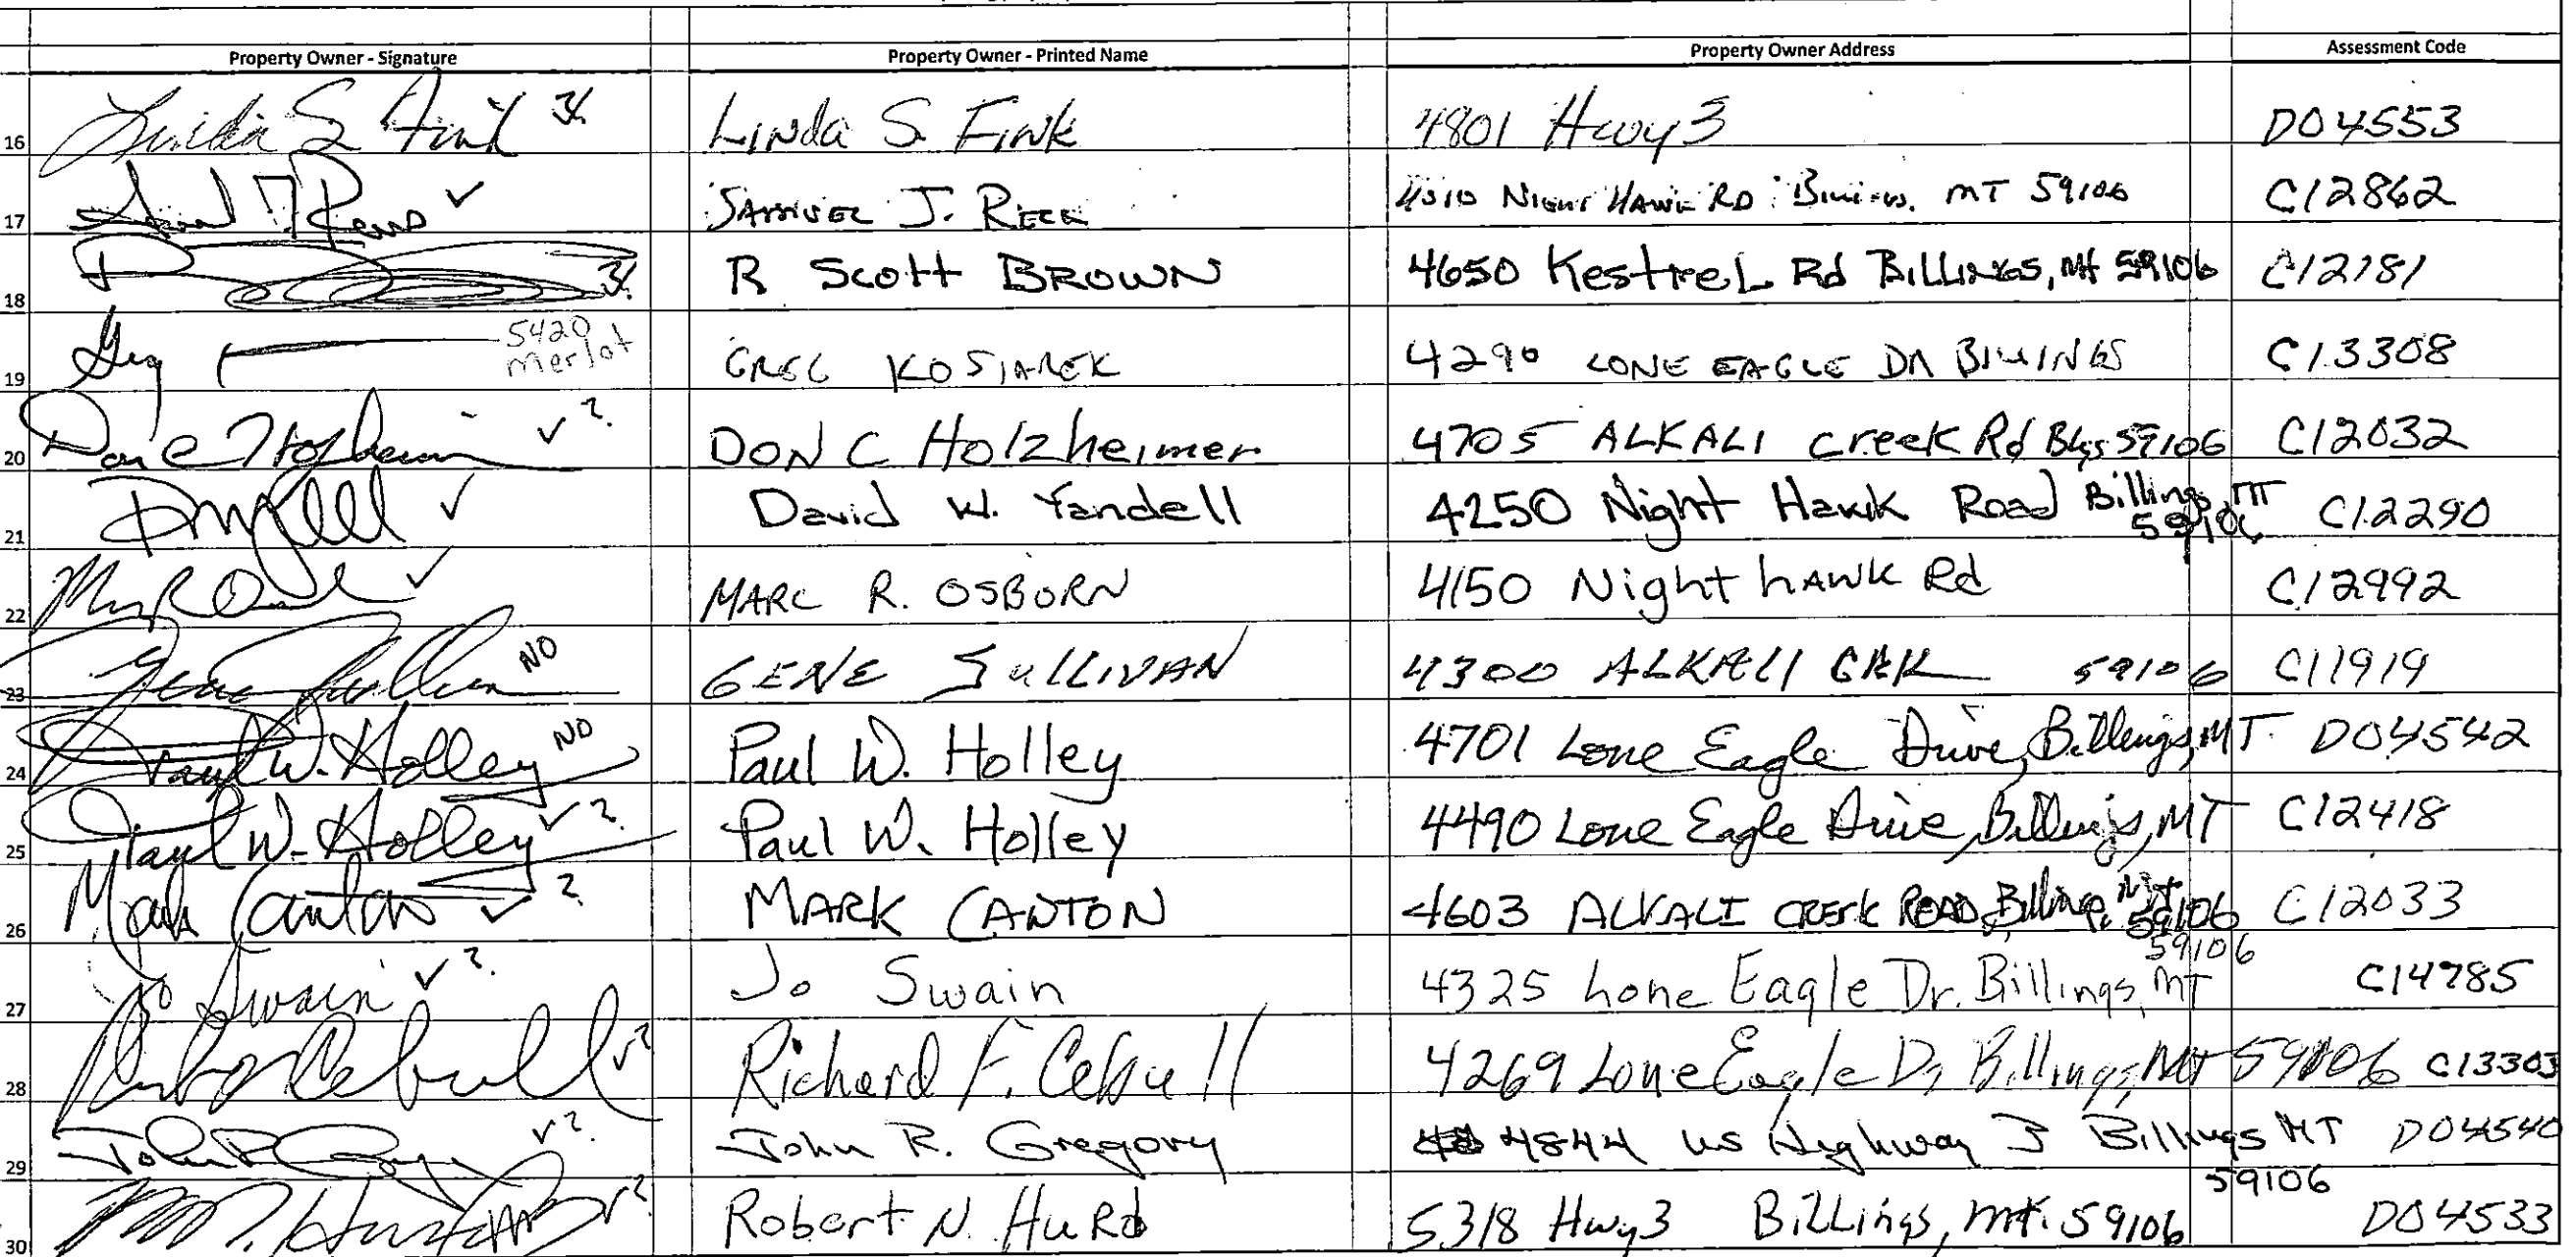 Property Owner - Signature Property Owner - Printed Name Property Owner Address Assessment Code
16 Linda S Fink Linda S. Fink 4801 Hwy 3 D04553
17 Samuel J. Reck Night Hawk RD MT 59106 C12862
18 R Scott Brown 4650 Kestrel Rd Billings, Mt 59106 C12181
19 Greg 5420 Merlot Greg Kosiarek 4290 Lone Eagle Dr Billings C13308
20 ✓? Don C Holzheimer 4705 Alkali Creek Rd Blgs 59106 C12032
21 ✓ David W. Yandell 4250 Night Hawk Road Billings, MT 59106 C12290
22 ✓ Marc R. Osborn 4150 Night hawk Rd C12992
23 Gene Sullivan NO Gene Sullivan 4300 Alkali Crk 59106 C11919
24 Paul W. Holley NO Paul W. Holley 4701 Lone Eagle Drive, Billings, MT D04542
25 Paul W. Holley ✓? Paul W. Holley 4490 Lone Eagle Drive, Billings, MT C12418
26 Mark Canton ✓? Mark Canton 4603 Alkali Creek Road, Billings, Mt 59106 C12033
27 Jo Swain ✓? Jo Swain 4325 Lone Eagle Dr. Billings, MT 59106 C14785
28 Cebull ✓? Richard F. Cebull 4269 Lone Eagle Dr Billings, Mt 59106 C13303
29 John R ✓? John R. Gregory 4844 US Highway 3 Billings MT 59106 D04540
30 ✓? Robert N. Hurd 5318 Hwy 3 Billings, Mt. 59106 D04533